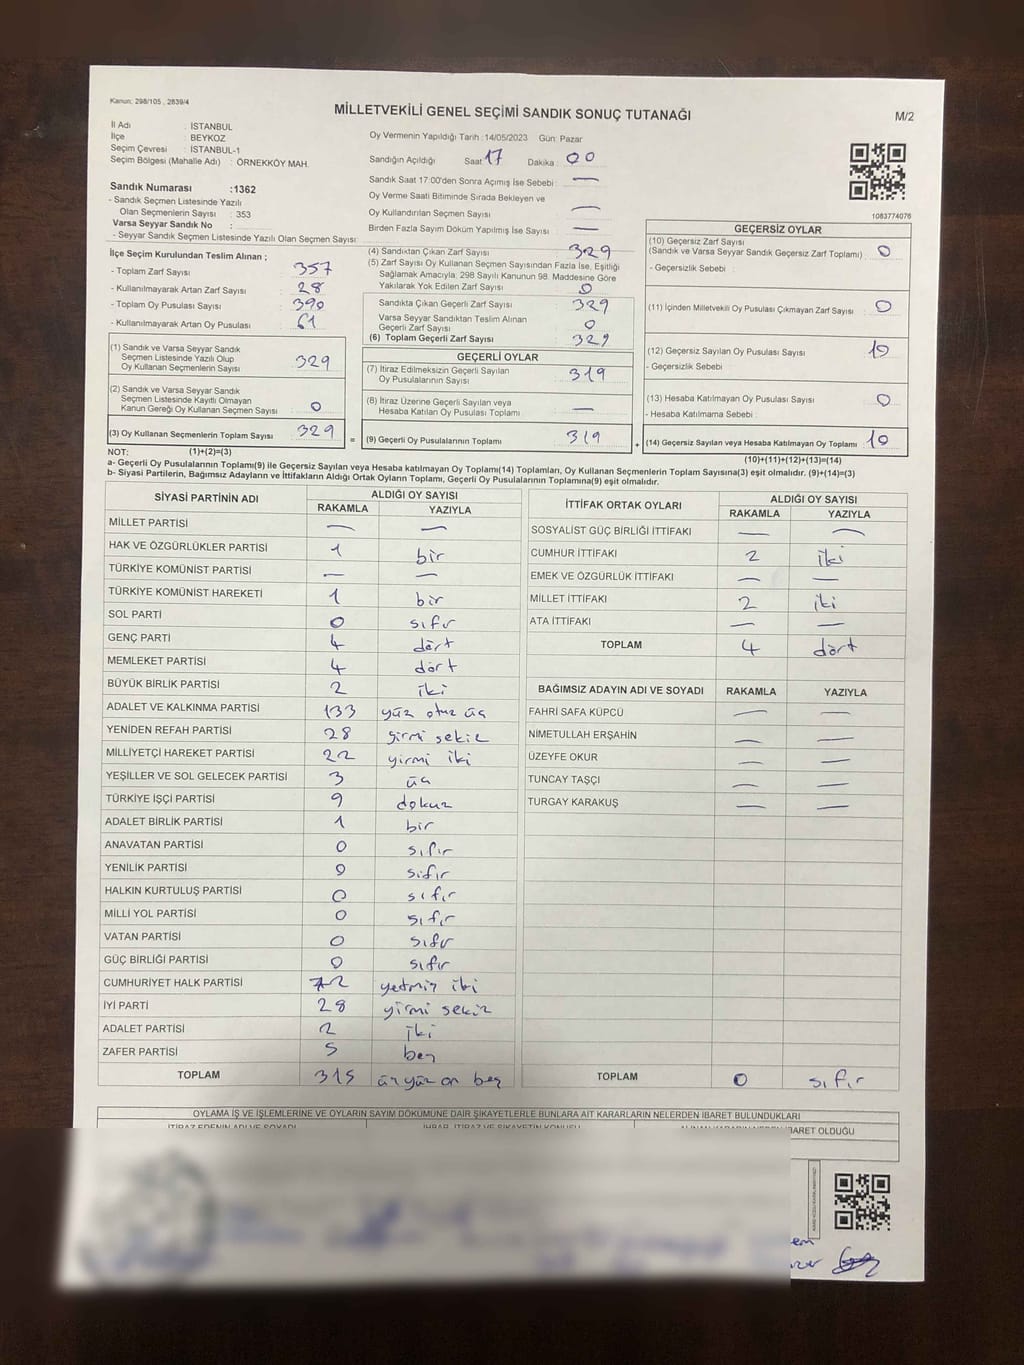 Kanun: 298/105 , 2839/4
MİLLETVEKİLİ GENEL SEÇİMİ SANDIK SONUÇ TUTANAĞI
M/2
İl Adı : İSTANBUL
İlçe : BEYKOZ
Seçim Çevresi : İSTANBUL-1
Seçim Bölgesi (Mahalle Adı) : ÖRNEKKÖY MAH.
Sandık Numarası :1362
- Sandık Seçmen Listesinde Yazılı
Olan Seçmenlerin Sayısı : 353
Varsa Seyyar Sandık No :
- Seyyar Sandık Seçmen Listesinde Yazılı Olan Seçmen Sayısı:
Oy Vermenin Yapıldığı Tarih :14/05/2023 Gün: Pazar
Sandığın Açıldığı Saat 17 Dakika : 00
Sandık Saat 17:00'den Sonra Açımış İse Sebebi : —
Oy Verme Saati Bitiminde Sırada Bekleyen ve
Oy Kullandırılan Seçmen Sayısı —
Birden Fazla Sayım Döküm Yapılmış İse Sayısı : —
1083774076
İlçe Seçim Kurulundan Teslim Alınan ;
- Toplam Zarf Sayısı : 357
- Kullanılmayarak Artan Zarf Sayısı : 28
- Toplam Oy Pusulası Sayısı : 390
- Kullanılmayarak Artan Oy Pusulası : 61
(1) Sandık ve Varsa Seyyar Sandık
Seçmen Listesinde Yazılı Olup
Oy Kullanan Seçmenlerin Sayısı : 329
(2) Sandık ve Varsa Seyyar Sandık
Seçmen Listesinde Kayıtlı Olmayan
Kanun Gereği Oy Kullanan Seçmen Sayısı : 0
(3) Oy Kullanan Seçmenlerin Toplam Sayısı : 329
(4) Sandıktan Çıkan Zarf Sayısı : 329
(5) Zarf Sayısı Oy Kullanan Seçmen Sayısından Fazla İse, Eşitliği
Sağlamak Amacıyla; 298 Sayılı Kanunun 98. Maddesine Göre
Yakılarak Yok Edilen Zarf Sayısı : 0
Sandıkta Çıkan Geçerli Zarf Sayısı : 329
Varsa Seyyar Sandıktan Teslim Alınan
Geçerli Zarf Sayısı : 0
(6) Toplam Geçerli Zarf Sayısı : 329
GEÇERLİ OYLAR
(7) İtiraz Edilmeksizin Geçerli Sayılan
Oy Pusulalarının Sayısı : 319
(8) İtiraz Üzerine Geçerli Sayılan veya
Hesaba Katılan Oy Pusulası Toplamı : —
= (9) Geçerli Oy Pusulalarının Toplamı : 319
GEÇERSİZ OYLAR
(10) Geçersiz Zarf Sayısı
(Sandık ve Varsa Seyyar Sandık Geçersiz Zarf Toplamı) : 0
- Geçersizlik Sebebi :
(11) İçinden Milletvekili Oy Pusulası Çıkmayan Zarf Sayısı : 0
(12) Geçersiz Sayılan Oy Pusulası Sayısı : 10
- Geçersizlik Sebebi :
(13) Hesaba Katılmayan Oy Pusulası Sayısı : 0
- Hesaba Katılmama Sebebi :
+ (14) Geçersiz Sayılan veya Hesaba Katılmayan Oy Toplamı : 10
NOT: (1)+(2)=(3)
(10)+(11)+(12)+(13)=(14)
a- Geçerli Oy Pusulalarının Toplamı(9) ile Geçersiz Sayılan veya Hesaba katılmayan Oy Toplamı(14) Toplamları, Oy Kullanan Seçmenlerin Toplam Sayısına(3) eşit olmalıdır. (9)+(14)=(3)
b- Siyasi Partilerin, Bağımsız Adayların ve İttifakların Aldığı Ortak Oyların Toplamı, Geçerli Oy Pusulalarının Toplamına(9) eşit olmalıdır.
SİYASİ PARTİNİN ADI ALDIĞI OY SAYISI
RAKAMLA YAZIYLA
MİLLET PARTİSİ — —
HAK VE ÖZGÜRLÜKLER PARTİSİ 1 bir
TÜRKİYE KOMÜNİST PARTİSİ — —
TÜRKİYE KOMÜNİST HAREKETİ 1 bir
SOL PARTİ 0 sıfır
GENÇ PARTİ 4 dört
MEMLEKET PARTİSİ 4 dört
BÜYÜK BİRLİK PARTİSİ 2 iki
ADALET VE KALKINMA PARTİSİ 133 yüz otuz üç
YENİDEN REFAH PARTİSİ 28 yirmi sekiz
MİLLİYETÇİ HAREKET PARTİSİ 22 yirmi iki
YEŞİLLER VE SOL GELECEK PARTİSİ 3 üç
TÜRKİYE İŞÇİ PARTİSİ 9 dokuz
ADALET BİRLİK PARTİSİ 1 bir
ANAVATAN PARTİSİ 0 sıfır
YENİLİK PARTİSİ 0 sıfır
HALKIN KURTULUŞ PARTİSİ 0 sıfır
MİLLİ YOL PARTİSİ 0 sıfır
VATAN PARTİSİ 0 sıfır
GÜÇ BİRLİĞİ PARTİSİ 0 sıfır
CUMHURİYET HALK PARTİSİ 72 yetmiş iki
İYİ PARTİ 28 yirmi sekiz
ADALET PARTİSİ 2 iki
ZAFER PARTİSİ 5 beş
TOPLAM 315 üç yüz on beş
İTTİFAK ORTAK OYLARI ALDIĞI OY SAYISI
RAKAMLA YAZIYLA
SOSYALİST GÜÇ BİRLİĞİ İTTİFAKI — —
CUMHUR İTTİFAKI 2 iki
EMEK VE ÖZGÜRLÜK İTTİFAKI — —
MİLLET İTTİFAKI 2 iki
ATA İTTİFAKI — —
TOPLAM 4 dört
BAĞIMSIZ ADAYIN ADI VE SOYADI RAKAMLA YAZIYLA
FAHRİ SAFA KÜPCÜ — —
NİMETULLAH ERŞAHİN — —
ÜZEYFE OKUR — —
TUNCAY TAŞÇI — —
TURGAY KARAKUŞ — —
TOPLAM 0 sıfır
OYLAMA İŞ VE İŞLEMLERİNE VE OYLARIN SAYIM DÖKÜMÜNE DAİR ŞİKAYETLERLE BUNLARA AİT KARARLARIN NELERDEN İBARET BULUNDUKLARI
İTİRAZ EDENİN ADI VE SOYADI İHBAR, İTİRAZ VE ŞİKAYETİN KONUSU İBARET OLDUĞU